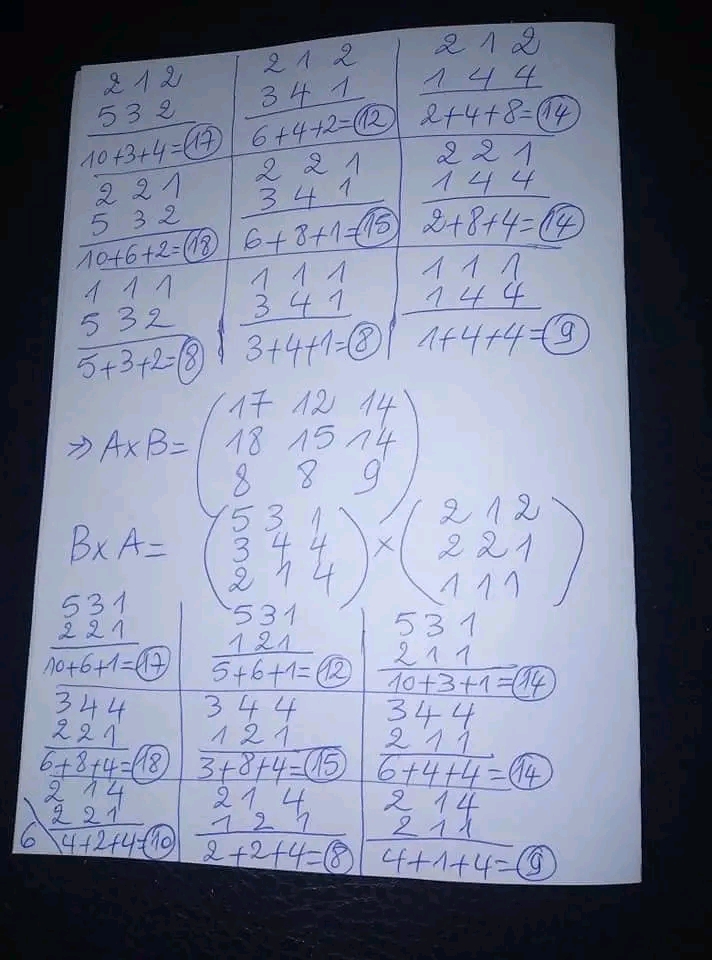 2 1 2
5 3 2
10+3+4=17
2 1 2
3 4 1
6+4+2=12
2 1 2
1 4 4
2+4+8=14
2 2 1
5 3 2
10+6+2=18
2 2 1
3 4 1
6+8+1=15
2 2 1
1 4 4
2+8+4=14
1 1 1
5 3 2
5+3+2=8
1 1 1
3 4 1
3+4+1=8
1 1 1
1 4 4
1+4+4=9
⇒ A×B= (17 12 14
18 15 14
8 8 9)
B×A= (5 3 1 × (2 1 2
3 4 4 2 2 1
2 1 4) 1 1 1)
5 3 1
2 2 1
10+6+1=17
5 3 1
1 2 1
5+6+1=12
5 3 1
2 1 1
10+3+1=14
3 4 4
2 2 1
6+8+4=18
3 4 4
1 2 1
3+8+4=15
3 4 4
2 1 1
6+4+4=14
2 1 4
2 2 1
6 4+2+4=10
2 1 4
1 2 1
2+2+4=8
2 1 4
2 1 1
4+1+4=9